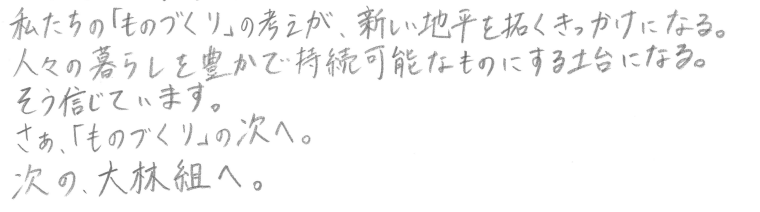 私たちの「ものづくり」の考えが、新しい地平を拓くきっかけになる。
人々の暮らしを豊かで持続可能なものにする土台になる。
そう信じています。
さあ、「ものづくり」の次へ。
次の、大林組へ。